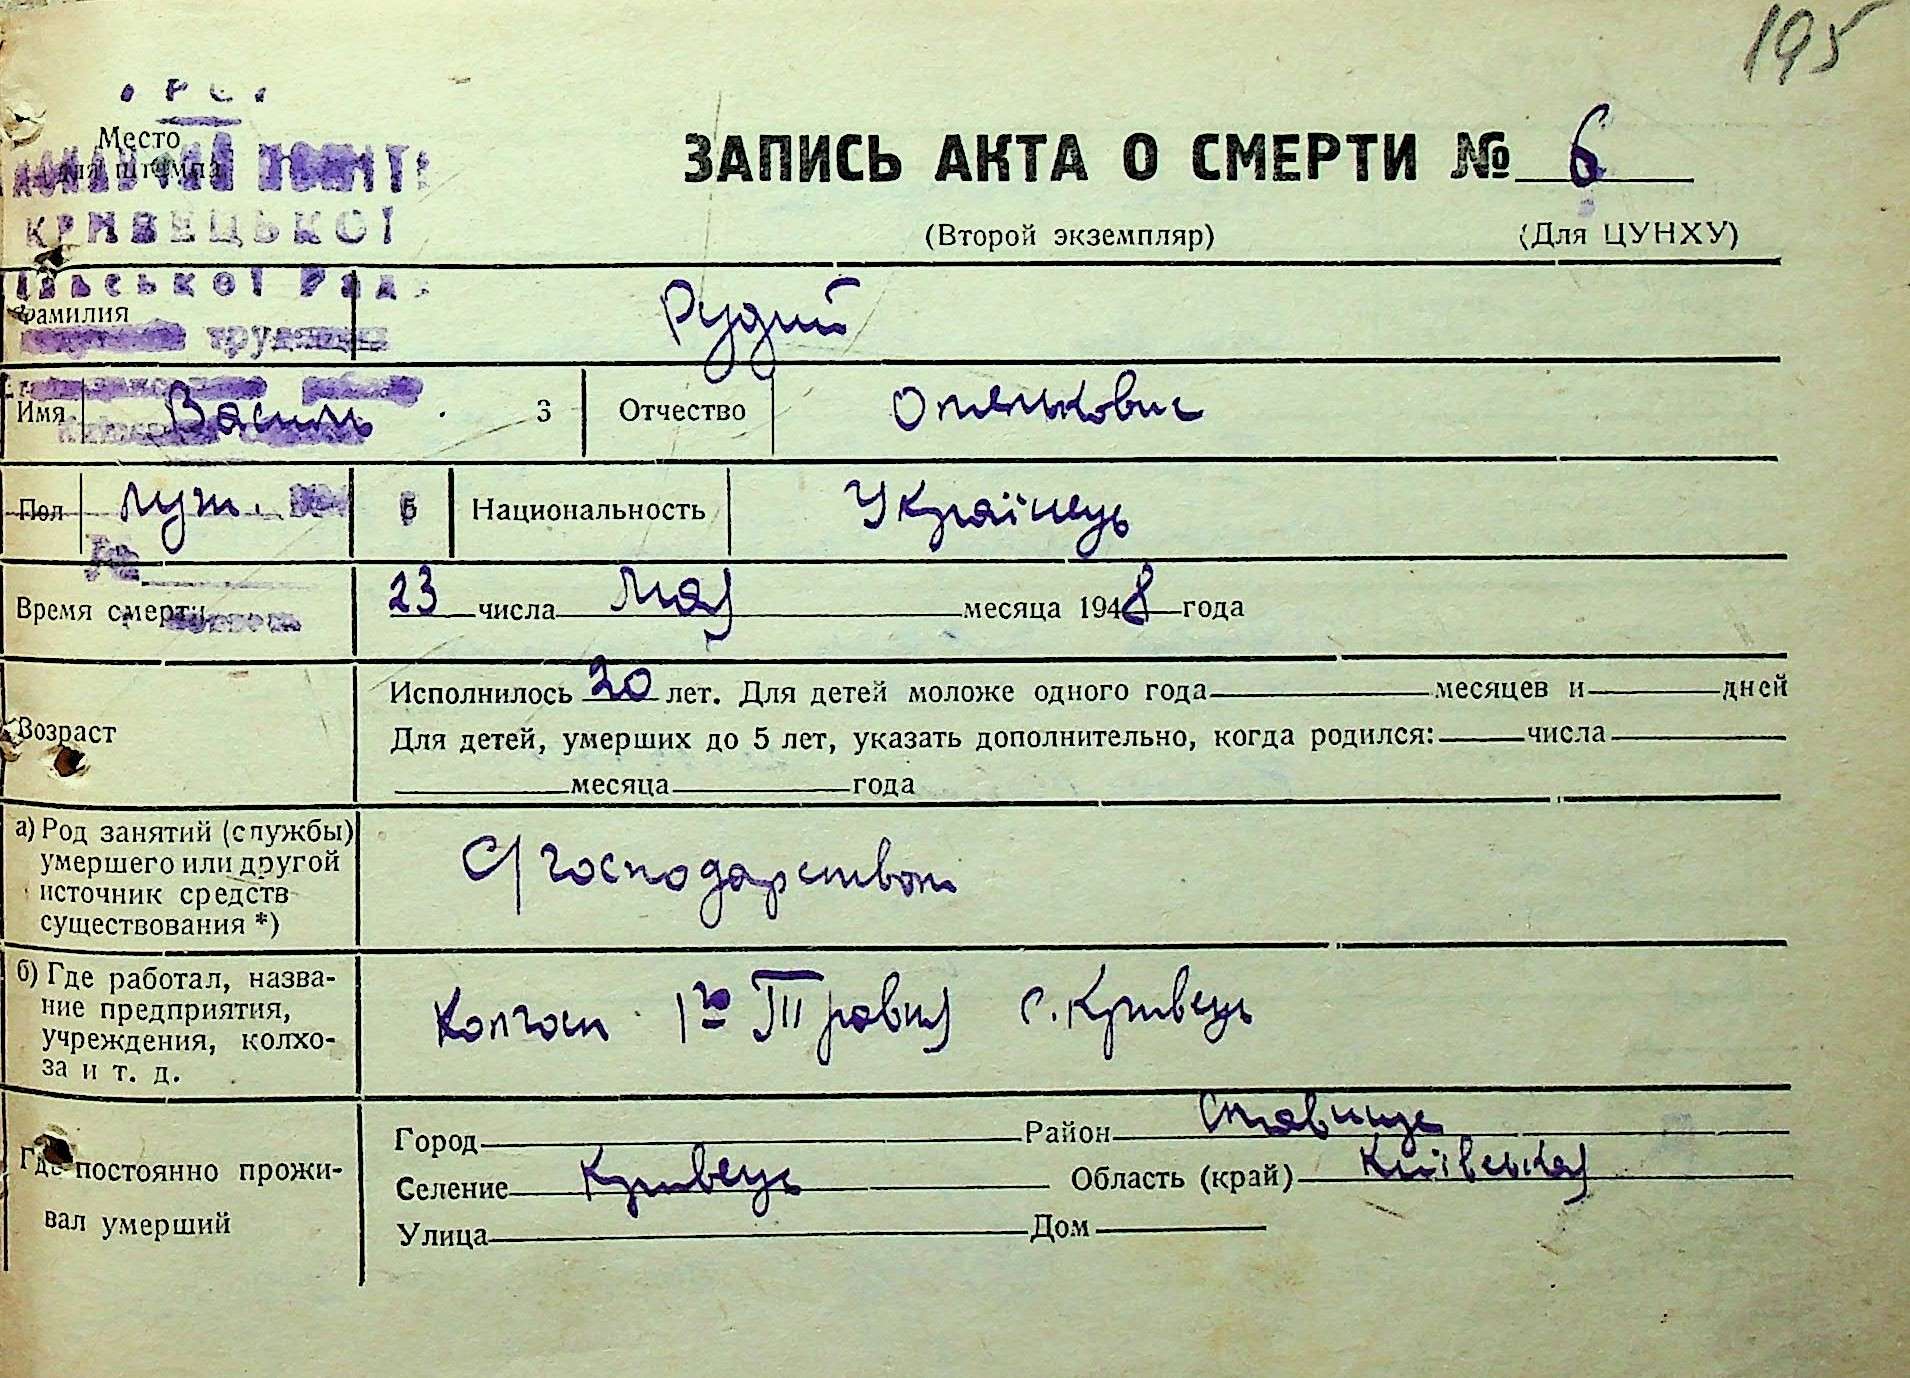 195
Место
для штампа
ЗАПИСЬ АКТА О СМЕРТИ № 6
КРИВЕЦЬКОЇ
(Второй экземпляр) (Для ЦУНХУ)
Фамилия Рудий
Имя Василь 3 Отчество
Пол муж. 6 Национальность Українець
Время смерти 23 числа мая месяца 1948 года
Исполнилось 20 лет. Для детей моложе одного года месяцев и дней
Возраст
Для детей, умерших до 5 лет, указать дополнительно, когда родился: числа
месяца года
а) Род занятий (службы)
умершего или другой
источник средств
существования *)
С/господарством
б) Где работал, назва-
ние предприятия,
учреждения, колхо-
за и т. д.
Колгосп 1го Травня с. Кривець
Где постоянно прожи-
вал умерший
Город Район Ставище
Селение Кривець Область (край) Київська
Улица Дом